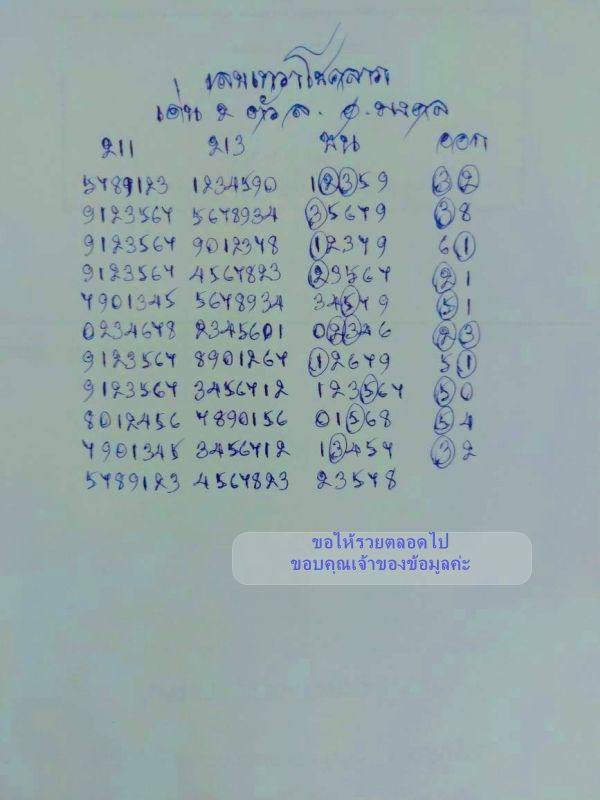 เลขเทวาโชคลาภ
เด่น 2 ตัว ล. อ.มงคล
211 213 ชน ออก
5789123 1234590 12359 32
9123567 5678934 35679 38
9123567 9012378 12379 61
9123567 4567823 23567 21
7901345 5678934 34579 51
0234678 2345601 02346 23
9123567 8901267 12679 51
9123567 3456712 123567 50
8012456 7890156 01568 54
7901345 3456712 13457 32
5789123 4567823 23578
ขอให้รวยตลอดไป
ขอบคุณเจ้าของข้อมูลค่ะ